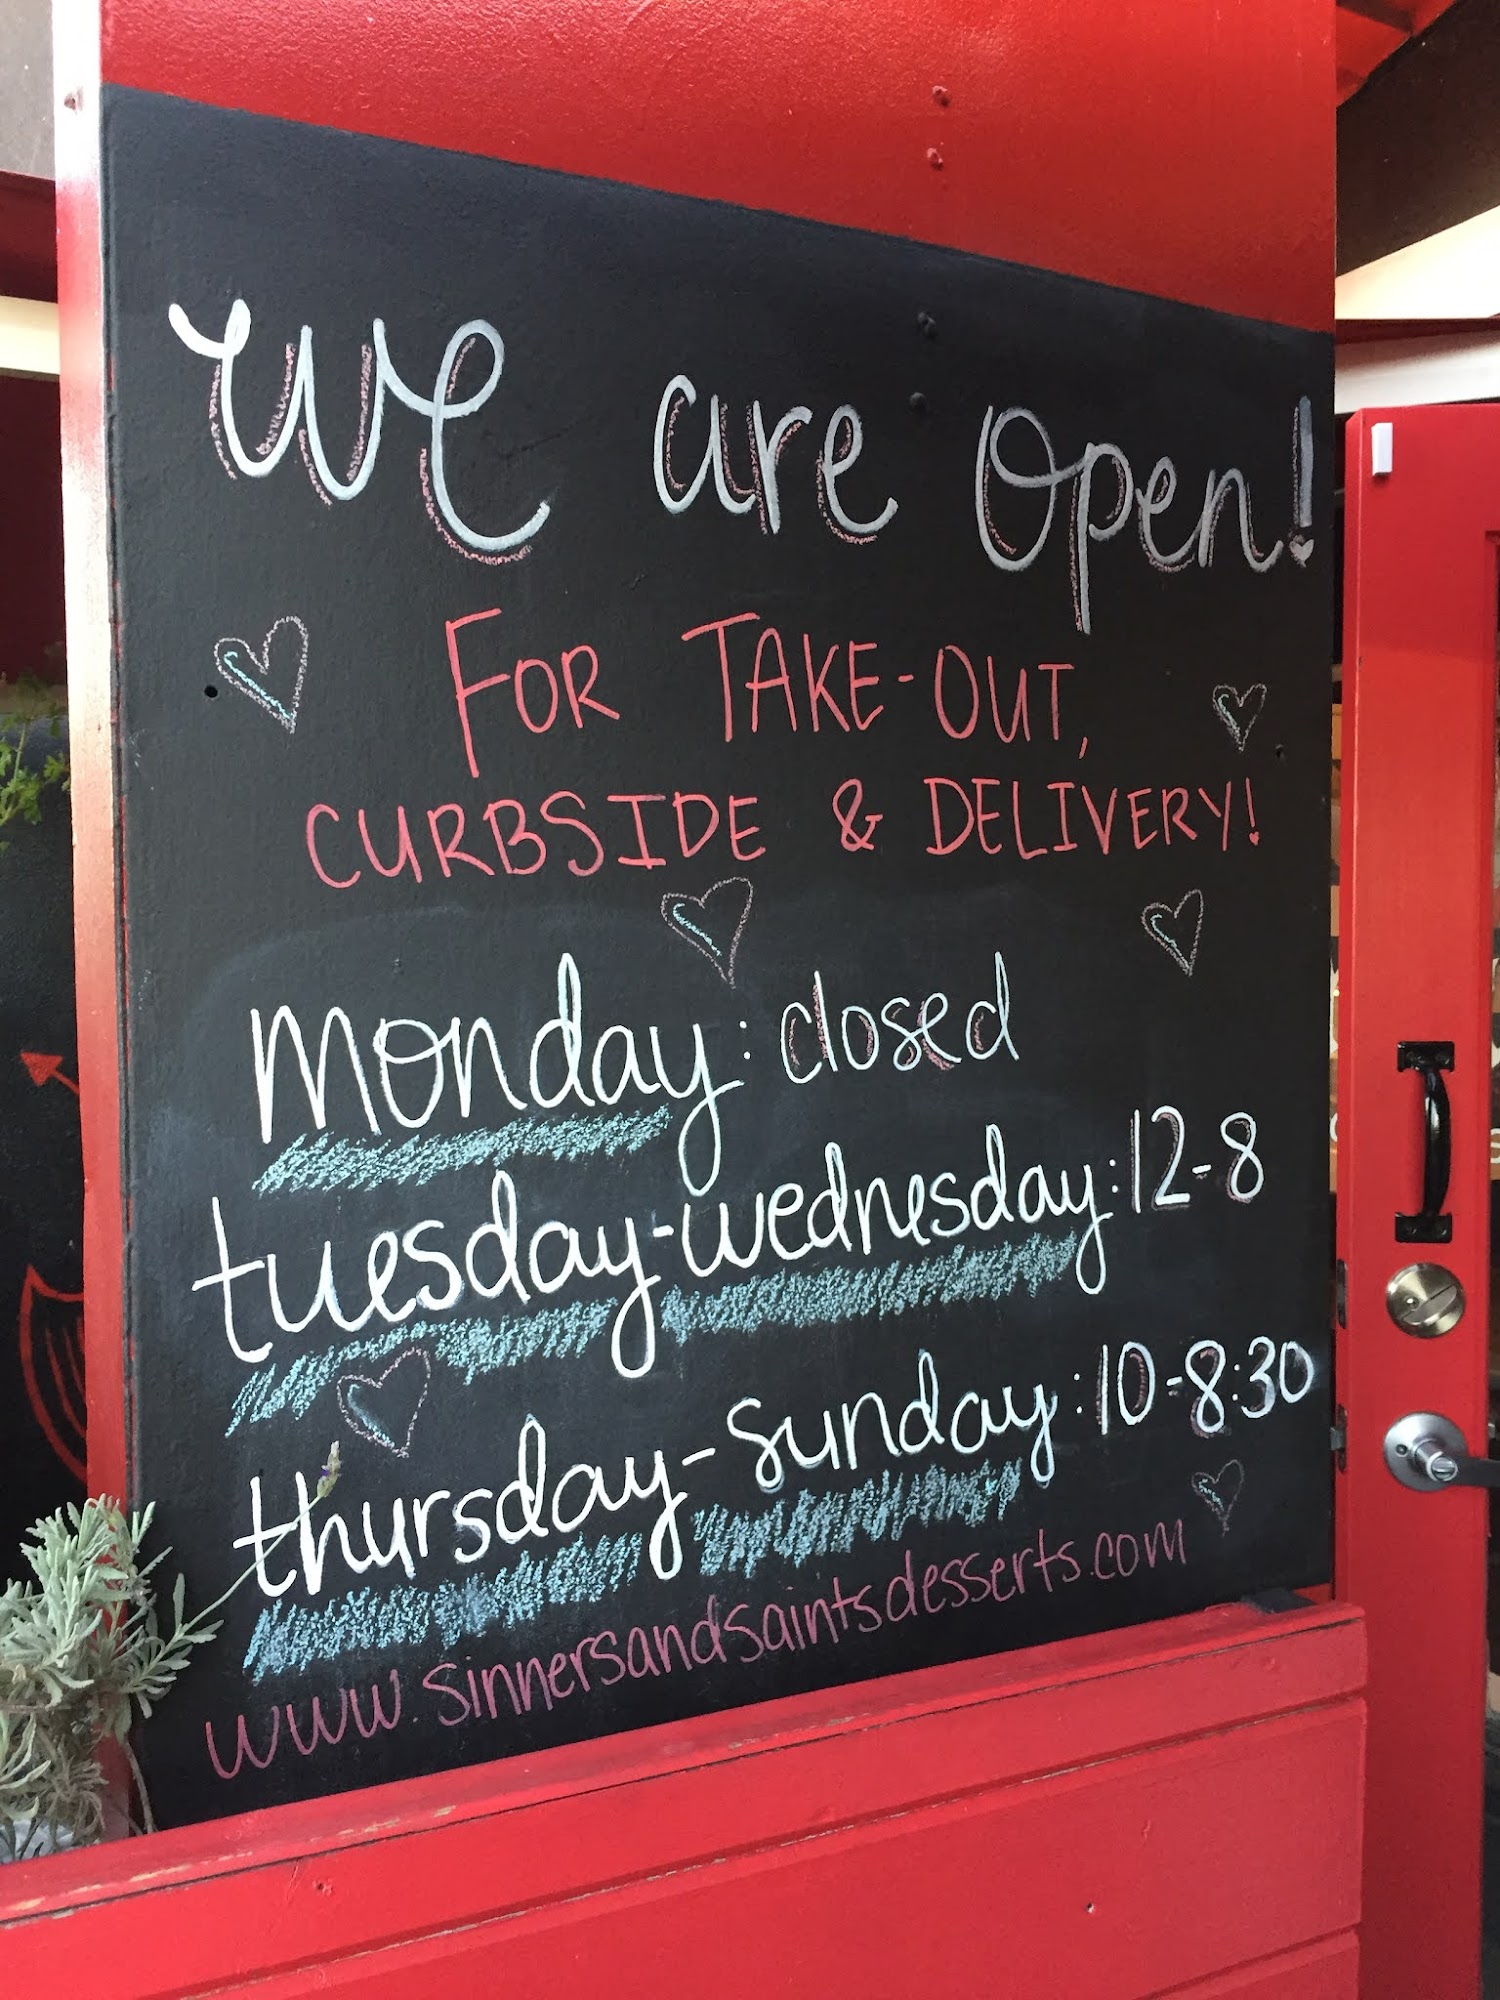 we are open!
FOR TAKE-OUT,
CURBSIDE & DELIVERY!
monday: closed
tuesday-wednesday: 12-8
thursday-sunday: 10-8:30
www.sinnersandsaintsdesserts.com